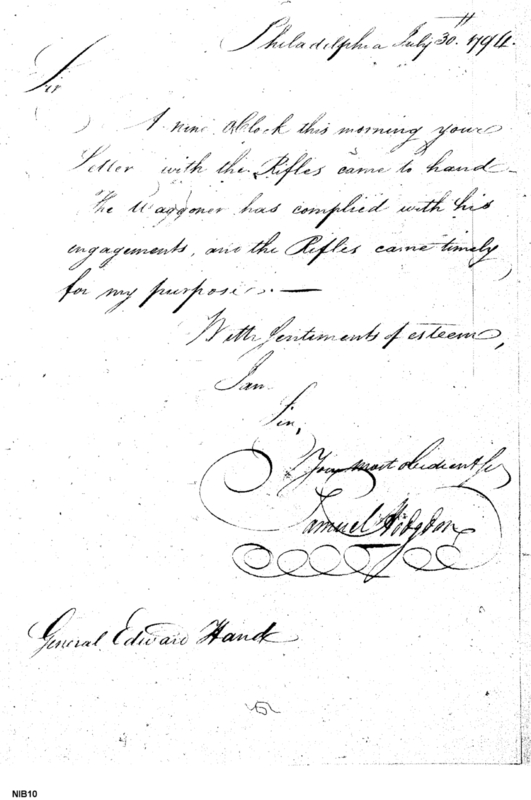 Philadelphia July 30th. 1794.
Sir
A nine oClock this morning your
Letter with the Rifles came to hand
The Waggoner has complied with his
engagements, and the Rifles came timely
for my purpose. —
With Sentiments of esteem,
I am
Sir,
Your most obedient Ser
Samuel Hodgdon
General Edward Hand
NIB10